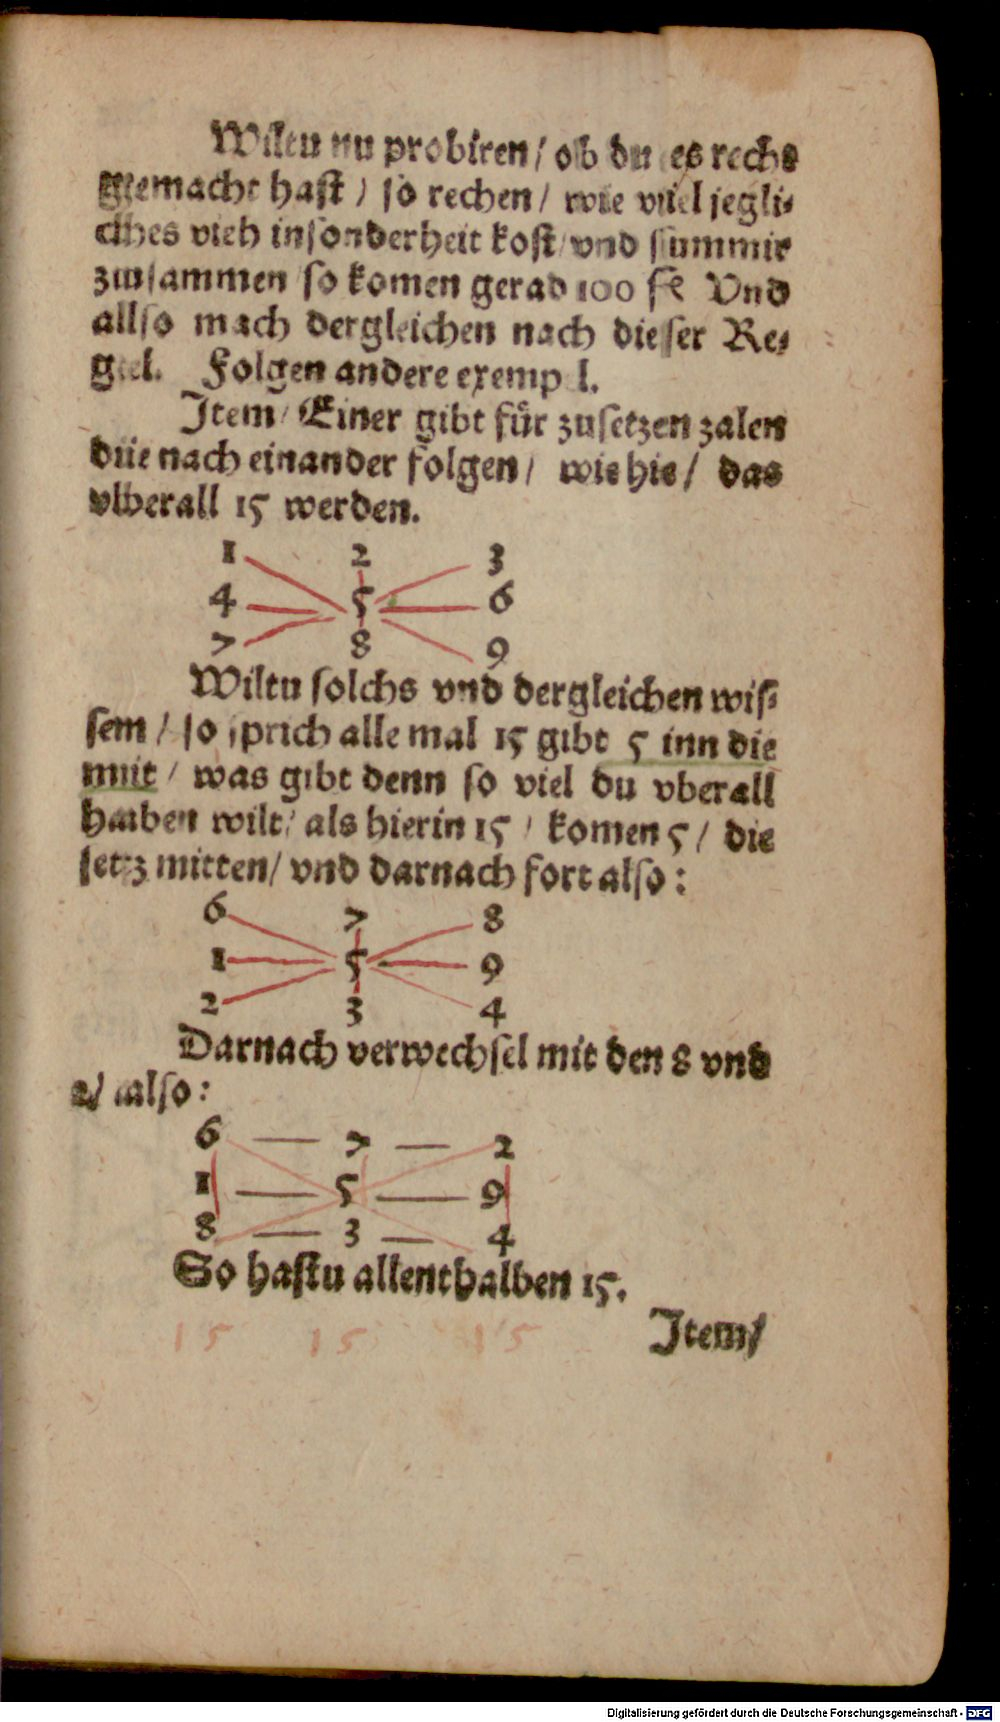 Wiltu nu probiren / ob du es recht
gemacht hast / so rechen / wie viel jegli⸗
ches vieh insonderheit kost / vnd summir
zusammen / so komen gerad 100 fl Vnd
also mach dergleichen nach dieser Re⸗
gel. Folgen andere exempl.
Item / Einer gibt für zusetzen zalen
die nach einander folgen / wie hie / das
vberall 15 werden.
1 2 3
4 5 6
7 8 9
Wiltu solchs vnd dergleichen wis⸗
sen / so sprich alle mal 15 gibt 5 inn die
mit / was gibt denn so viel du vberall
haben wilt / als hierin 15 / komen 5 / die
setz mitten / vnd darnach fort also :
6 7 8
1 5 9
2 3 4
Darnach verwechsel mit den 8 vnd
2 / also :
6 — 7 — 2
1 — 5 — 9
8 — 3 — 4
So hastu allenthalben 15.
Item /
15 15 15
Digitalisierung gefördert durch die Deutsche Forschungsgemeinschaft - DFG